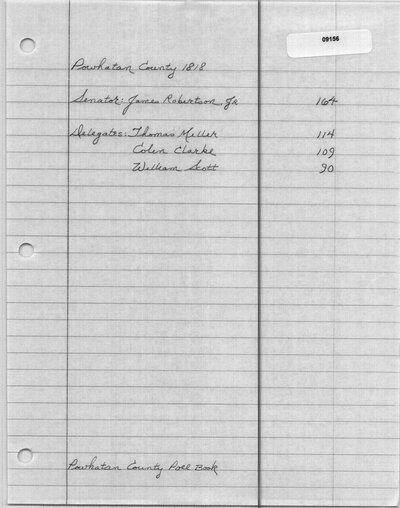 09156
Powhatan County 1818
Senator: James Robertson, Jr 164
Delegates: Thomas Miller 114
Colin Clarke 109
William Scott 90
Powhatan County Poll Book